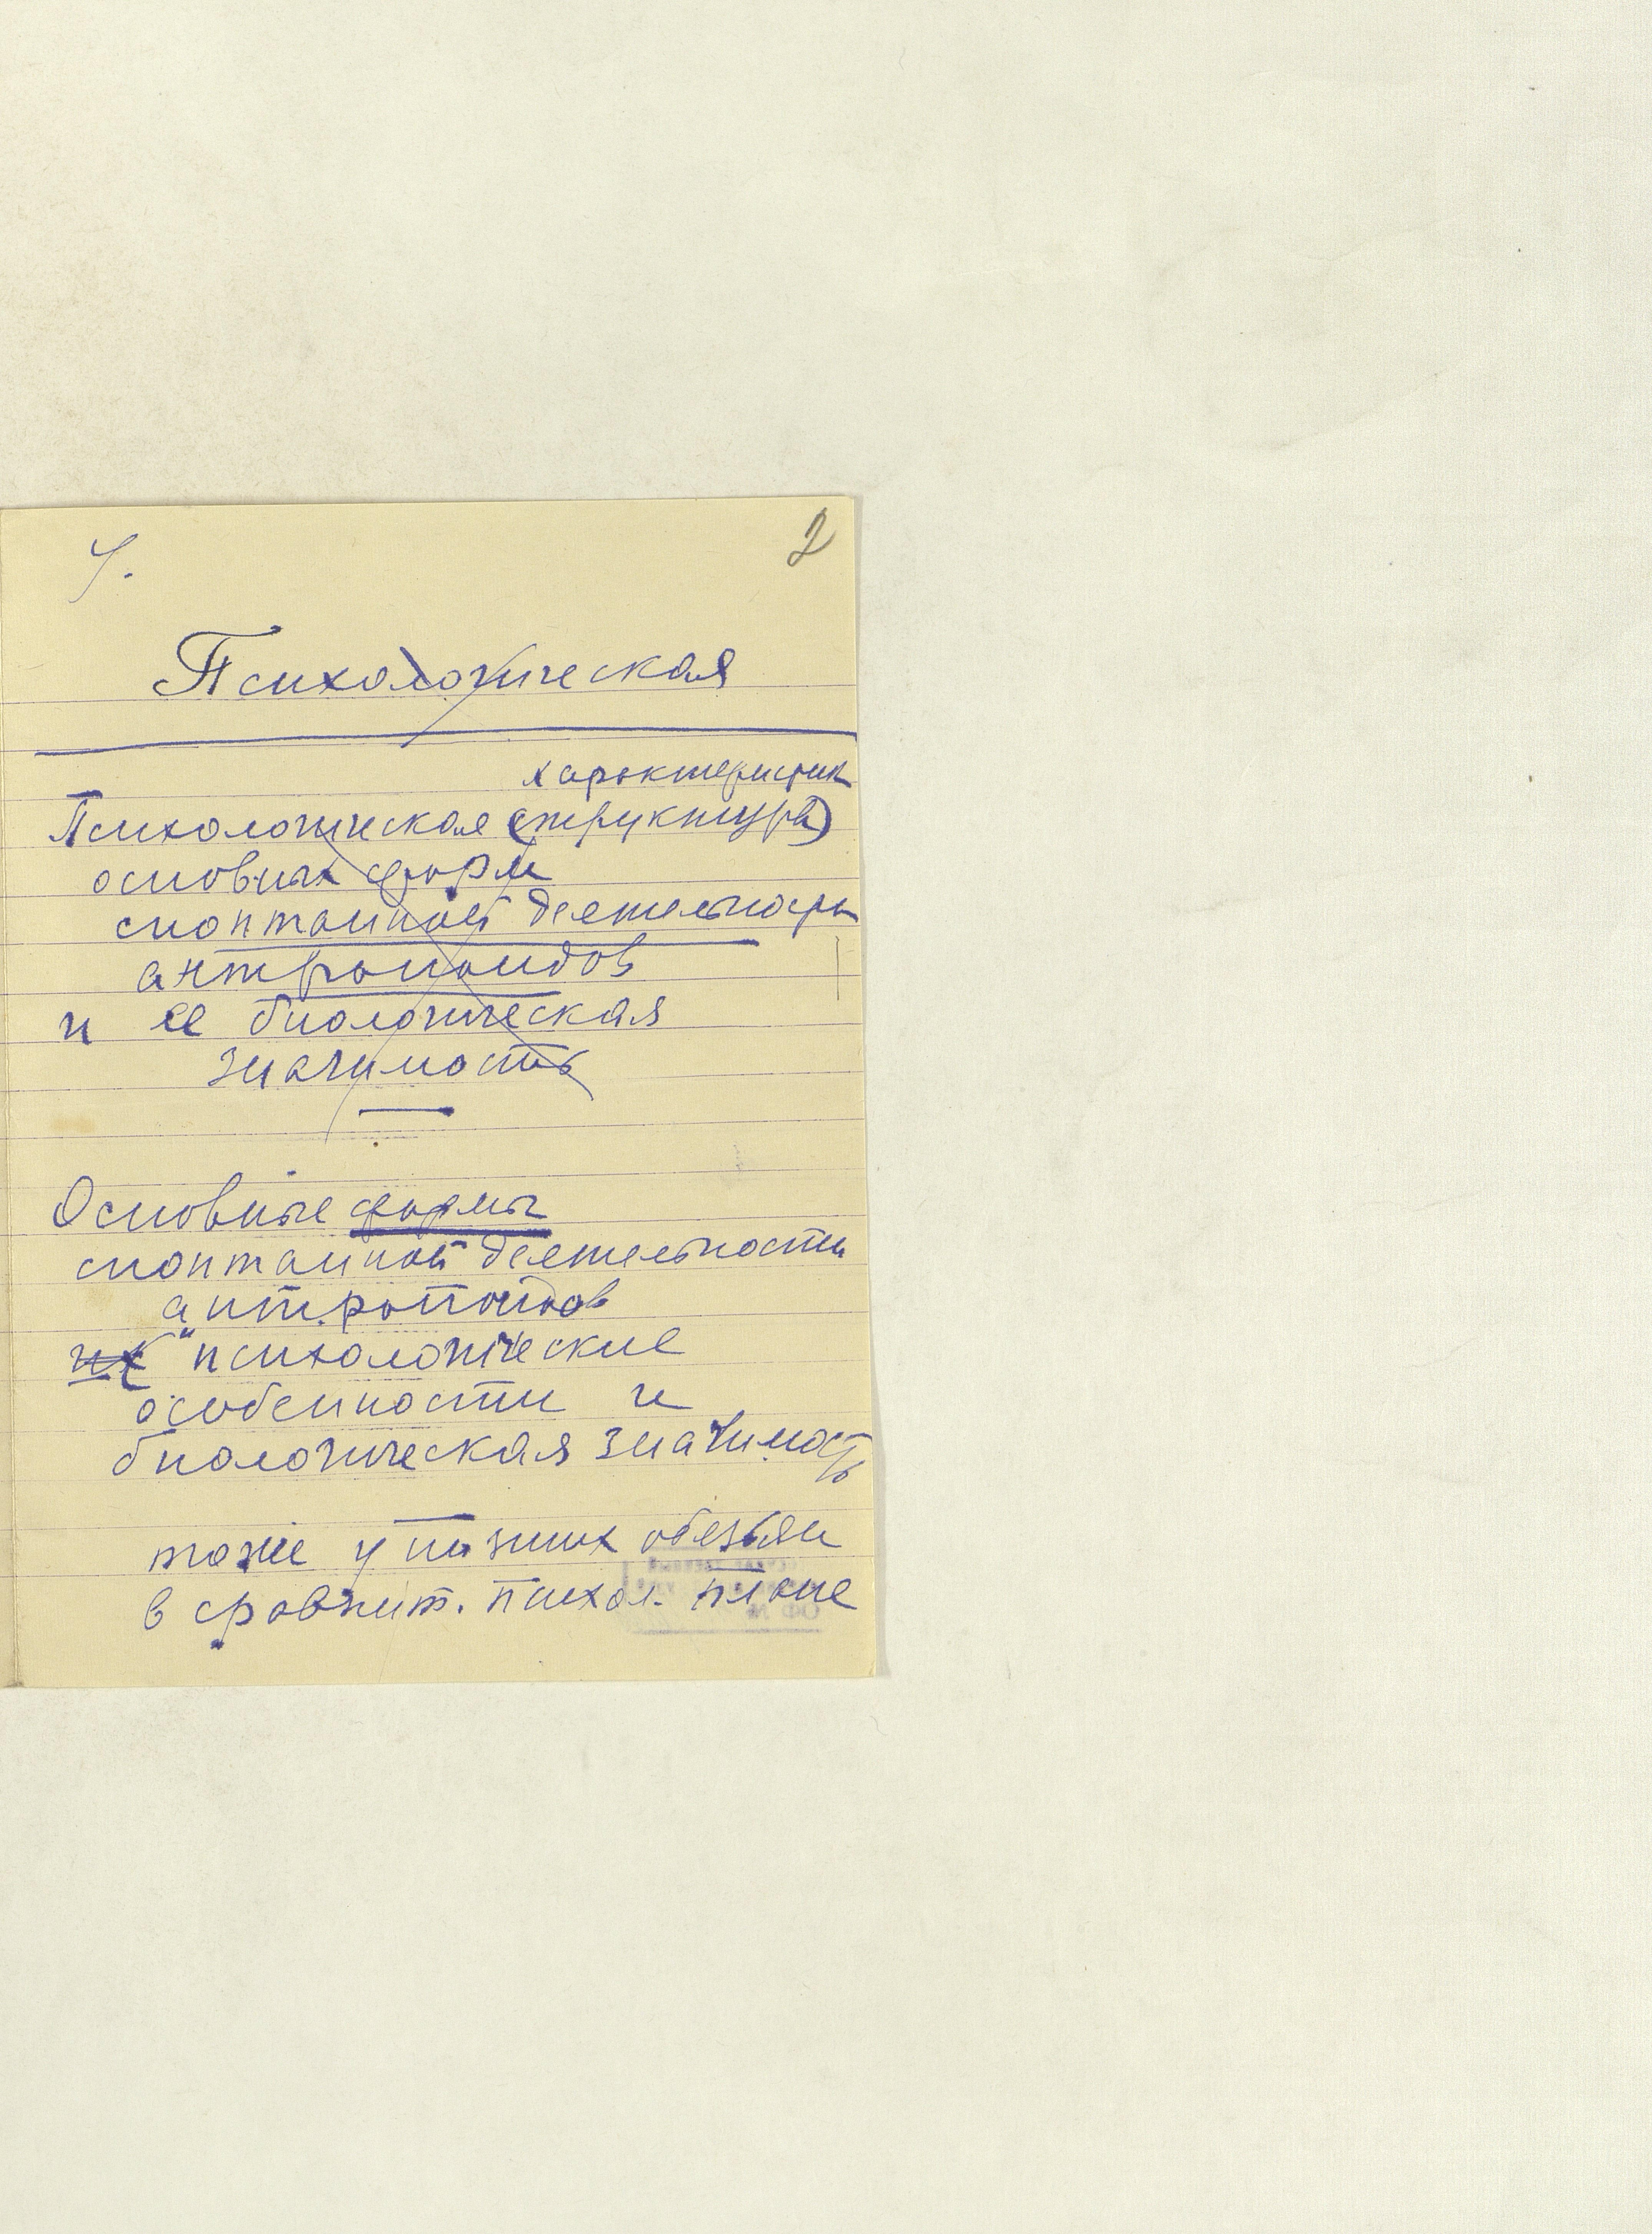 У.
2
Психологическая
характеристик
Психологическая (структура)
основных форм
спонтанной деятельности
антропоидов
и ее биологическая
значимость
Основные формы
спонтанной деятельности
антропоидов
их психологические
особенности и
биологическая значимость
тоже у низших обезьян
в сравнит. психол. плане